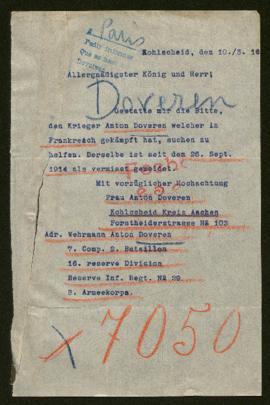 Paris
Kohlscheid, den 10./5. 16
Allergnädigster König und Herr!
Doveren
Gestatte mir die Bitte,
den Krieger Anton Doveren welcher in
Frankreich gekämpft hat, suchen zu
helfen. Derselbe ist seit den 26. Sept.
1914 als vermisst gemeldet.
Mit vorzüglicher Hochachtung
Frau Anton Doveren
Kohlscheid Kreis Aachen
Forstheiderstrasse № 103
Adr. Wehrmann Anton Doveren
7. Comp. 2. Bataillon
16. reserve Division
Reserve Inf. Regt. № 29
8. Armeekorps.
X 7050